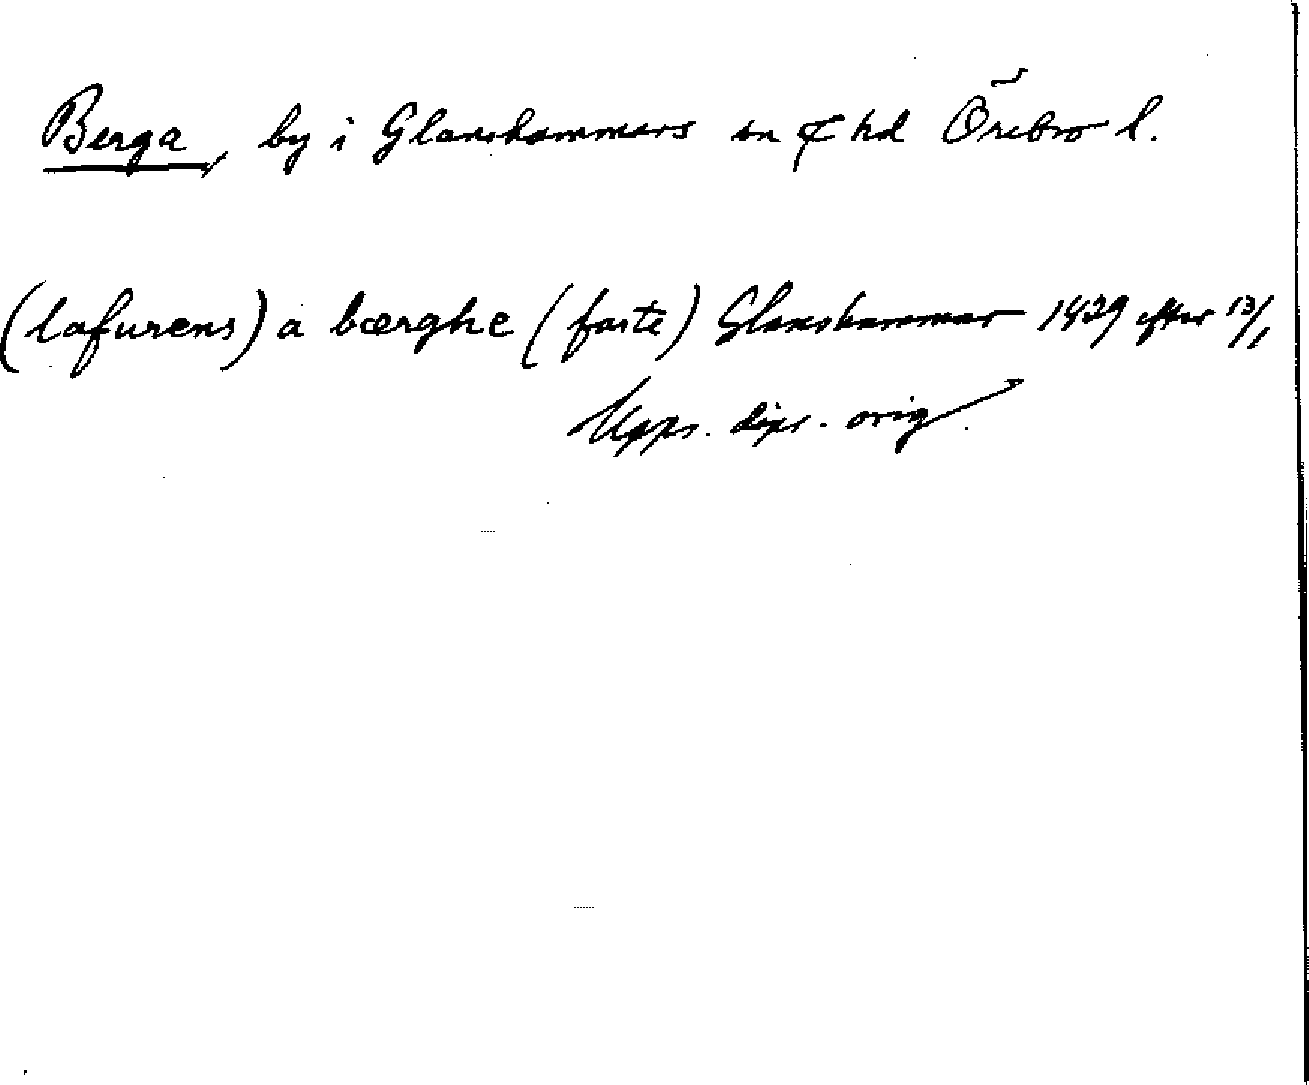 Berga, by i Glanshammars sn & hd Örebro l.
(lafurens) a bærghe (forte) Glanshammar 1429 efter 13/1
Upps. dipl. orig.